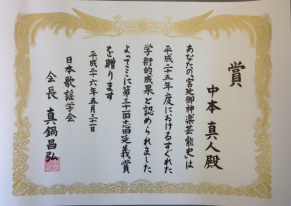 賞
中本真人殿
あなたの『宮廷御神楽芸能史』は
平成二十五年度におけるすぐれた
学術的成果と認められました
よってここに第三十一回志田延義賞
を贈ります
平成二十六年五月三十一日
日本歌謡学会
会長 真鍋昌弘